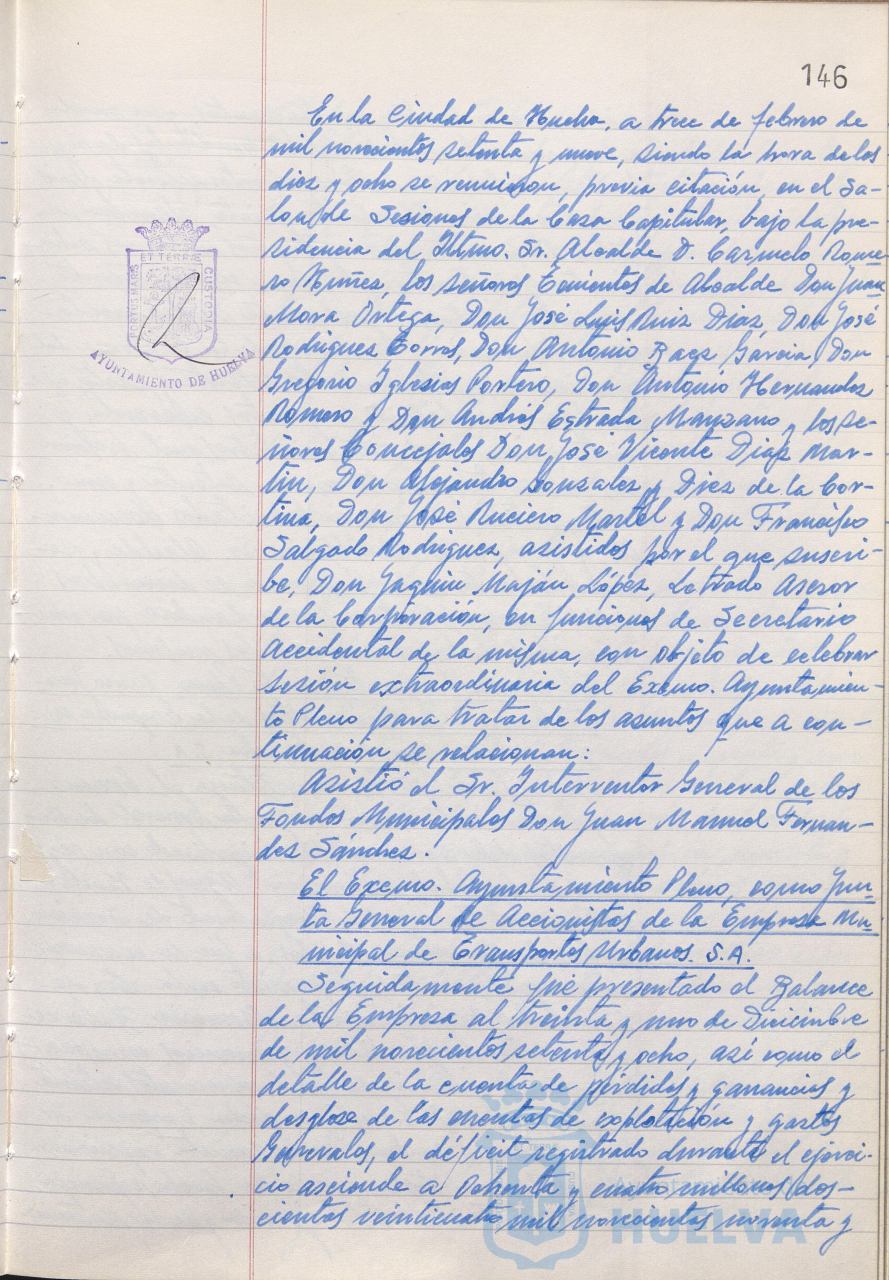 146
En la Ciudad de Huelva, a trece de febrero de
mil novecientos setenta y nueve, siendo la hora de las
diez y ocho se reunieron, previa citación, en el Sa-
lon de Sesiones de la Casa Capitular, bajo la pre-
sidencia del Iltmo. Sr. Alcalde D. Carmelo Rome-
ro Nuñez, los señores Tenientes de Alcalde Don Juan
Mora Ortega, Don José Luis Ruiz Diaz, Don José
Rodriguez Torres, Don Antonio Baez Garcia, Don
Gregorio Iglesias Portero, Don Antonio Hernandez
Romero y Don Andrés Estrada Manzano y los se-
ñores Concejales Don José Vicente Diaz Mar-
tin, Don Alejandro Gonzalez y Diez de la Cor-
tina, Don José Ruciero Martel y Don Francisco
Salgado Rodriguez, asistidos por el que suscri-
be, Don Jaquin Maján López, Letrado Asesor
de la Corporación, en funciones de Secretario
Accidental de la misma, con objeto de celebrar
sesión extraordinaria del Excmo. Ayuntamien-
to Pleno para tratar de los asuntos que a con-
tinuación se relacionan:
Asistió el Sr. Interventor General de los
Fondos Municipales Don Juan Manuel Fernan-
dez Sánchez.
El Excmo. Ayuntamiento Pleno, como Jun-
ta General de Accionistas de la Empresa Mu-
nicipal de Transportes Urbanos. S.A.
Seguidamente fue presentado el Balance
de la Empresa al treinta y uno de Diciembre
de mil novecientos setenta y ocho, asi como el
detalle de la cuenta de pérdidas y ganancias y
desglose de las cuentas de explotación y gastos
Generales, el déficit registrado durante el ejerci-
cio asciende a ochenta y cuatro millones dos-
cientos veinticuatro mil novecientos noventa y
PORTUS MARIS ET TERRÆ CUSTODIA
AYUNTAMIENTO DE HUELVA
Ayuntamiento de
HUELVA